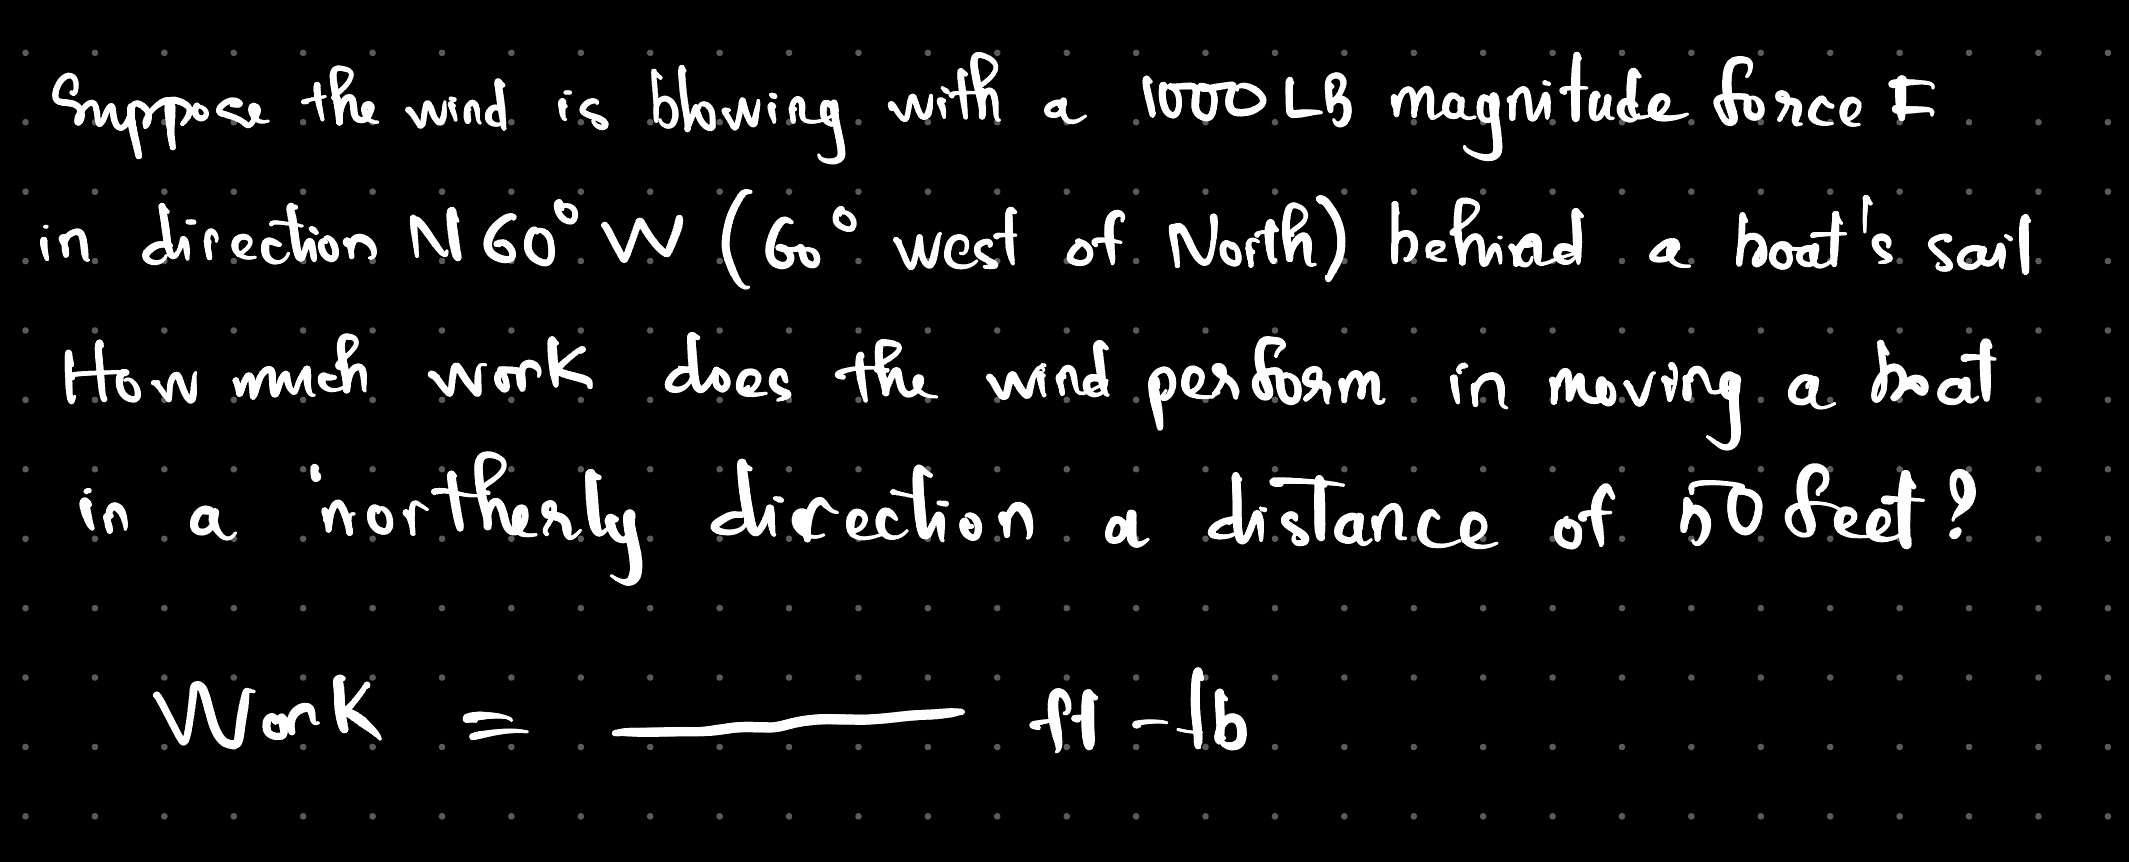 Suppose the wind is blowing with a 1000 LB magnitude force F
in direction N 60° W (60° west of North) behind a boat's sail
How much work does the wind perform in moving a boat
in a northerly direction a distance of 50 feet?
Work = ______ ft - lb